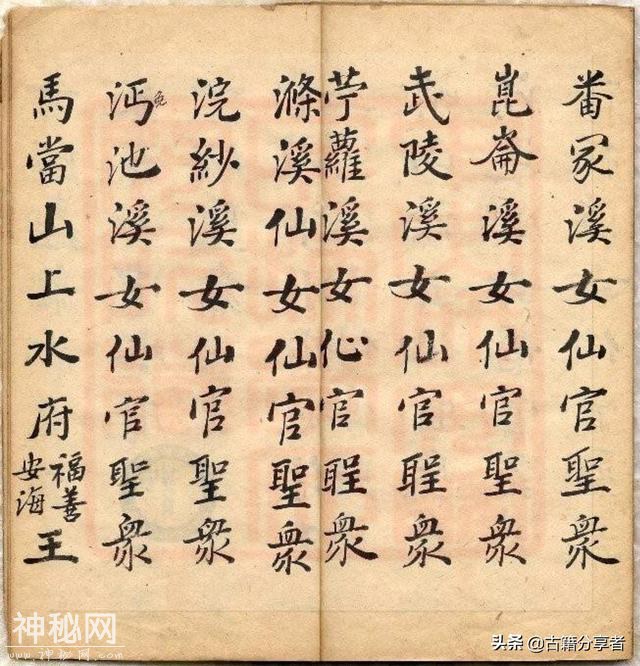 番冢溪女仙官聖衆
崑崙溪女仙官聖衆
武陵溪女仙官聖衆
苧蘿溪女仙官聖衆
滌溪仙女仙官聖衆
浣紗溪女仙官聖衆
沔免池溪女仙官聖衆
馬當山上水府福善安海王
神秘网
头条 @古籍分享者